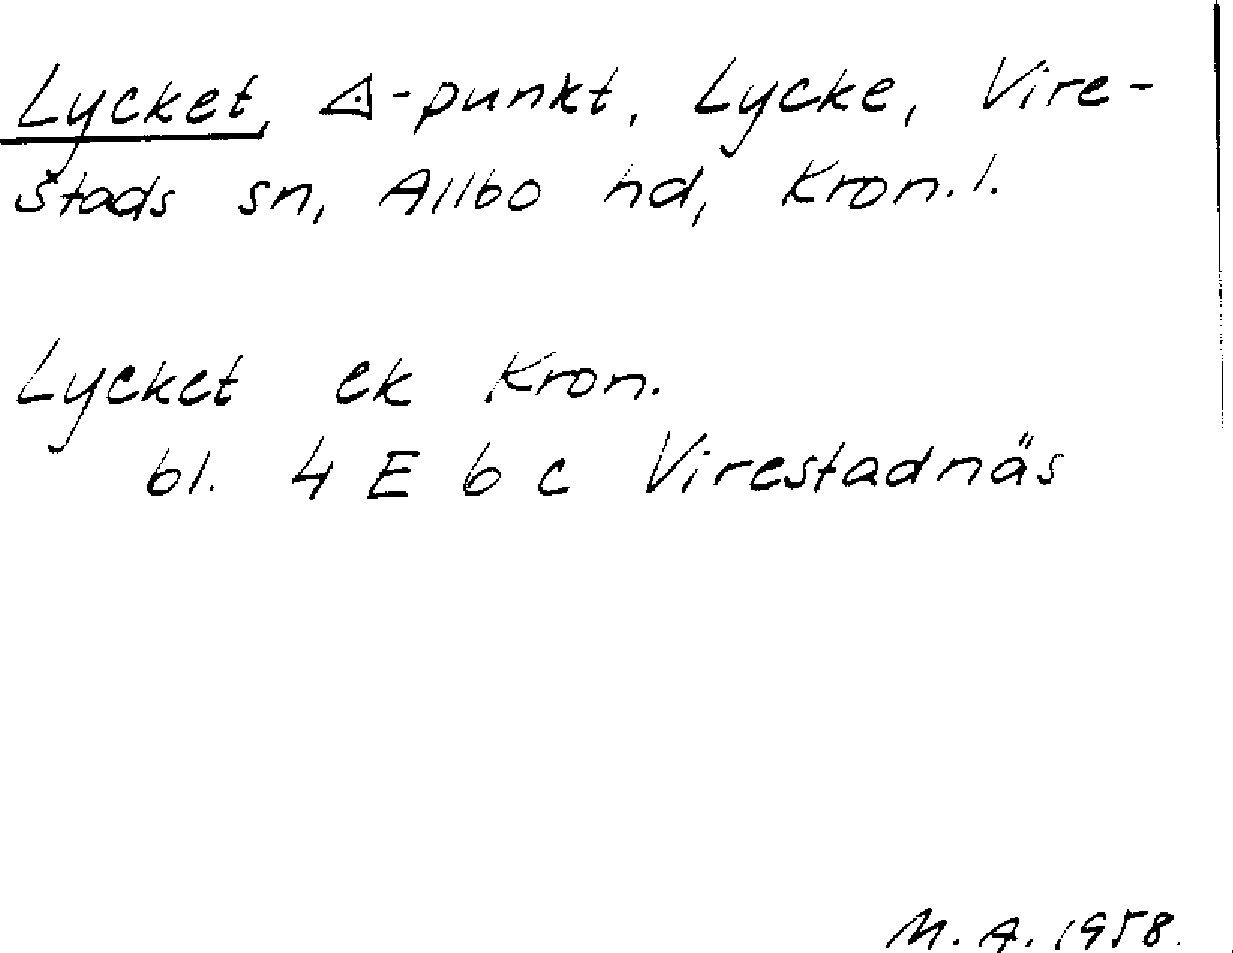 Lycket, △-punkt, Lycke, Vire-
stads sn, Allbo hd, Kron.l.
Lycket ek Kron.
bl. 4 E 6 c Virestadnäs
M.A. 1958.